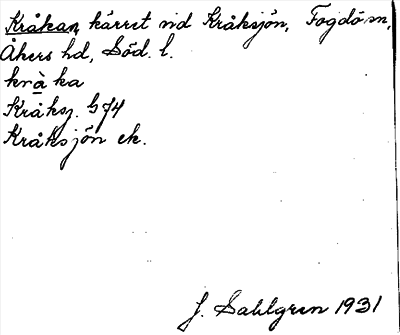 Kråkan, kärret vid Kråksjön, Fogdö sn,
Åkers hd, Söd. l.
krà ka
Kråksj. G74
Kråksjön ek.
J. Sahlgren 1931